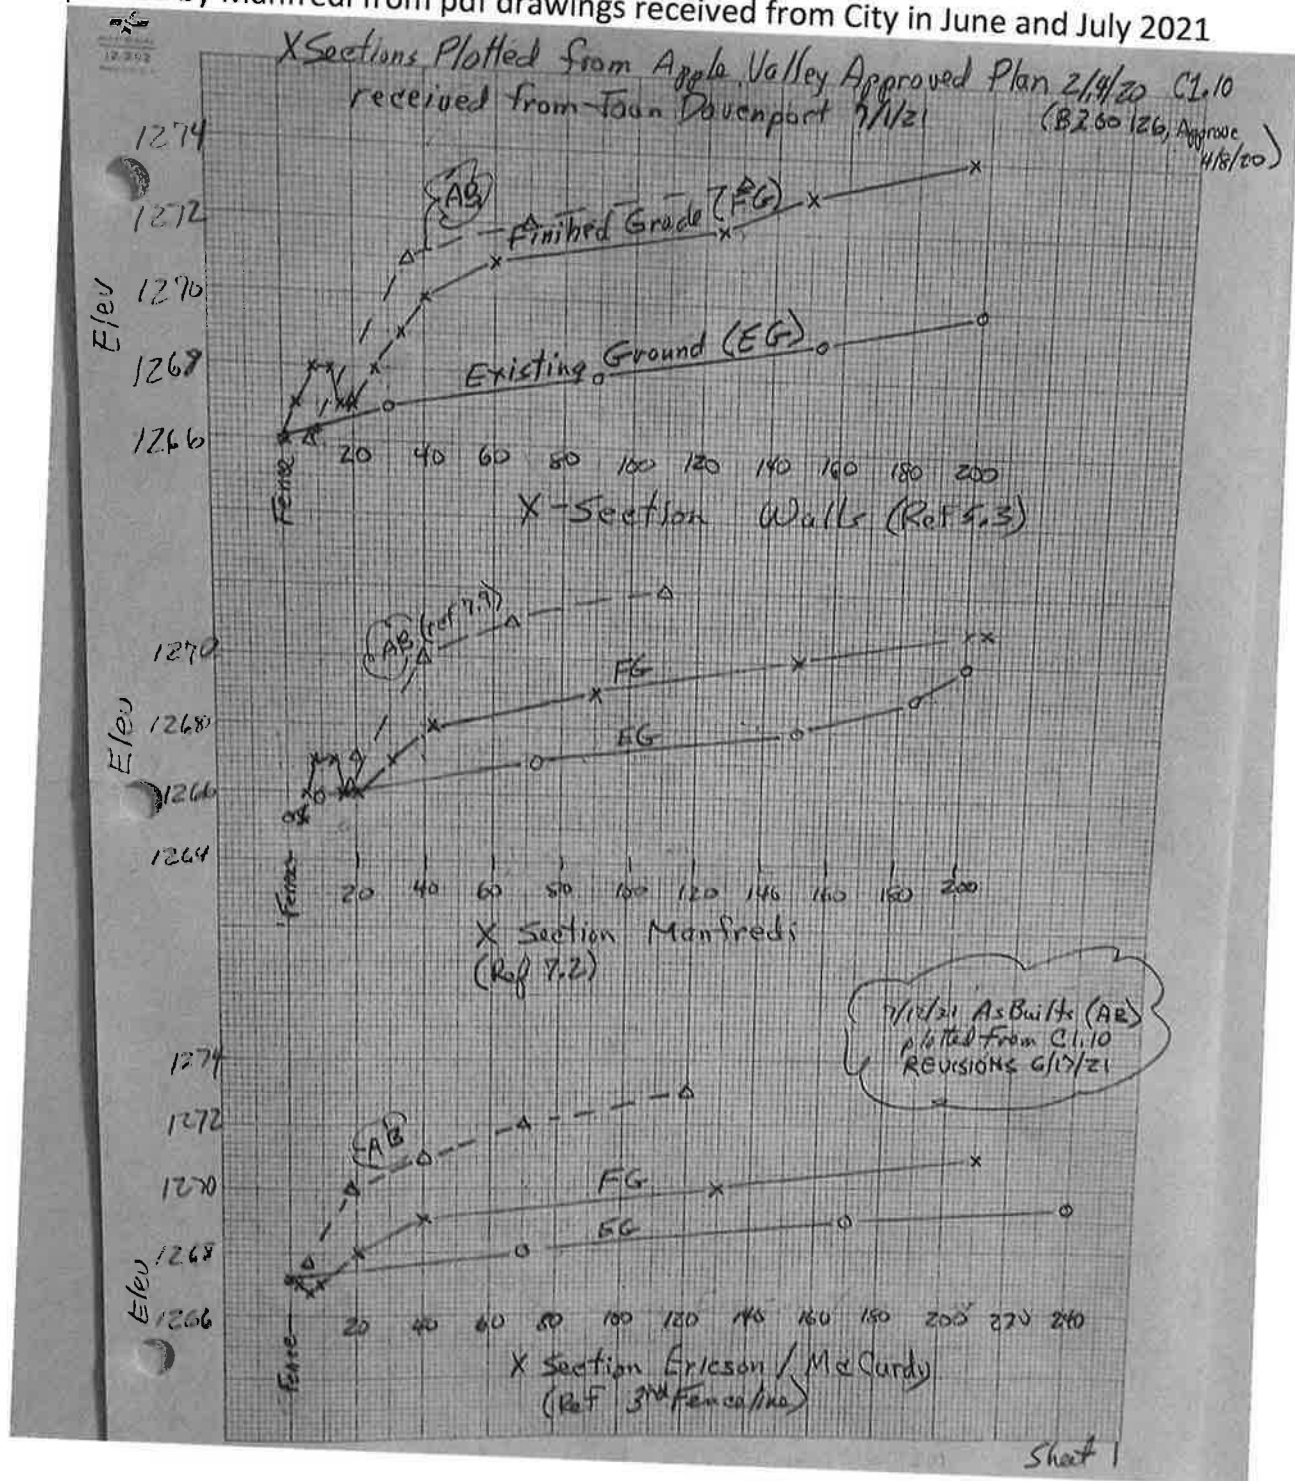 by Manfredi from pdf drawings received from City in June and July 2021
XSections Plotted from Apple Valley Approved Plan 2/4/20 C1.10
received from Joan Davenport 7/1/21
(BZ60126, Approve
4/8/20)
1274
1272
1270
1268
1266
Elev
AB
Finihed Grade (FG)
Existing Ground (EG)
Fence
20 40 60 80 100 120 140 160 180 200
X-Section Walls (Ref 5.3)
AB (ref 7.9)
1270
1268
1266
1264
Elev
FG
EG
Fence
20 40 60 80 100 120 140 160 180 200
X Section Manfredi
(Ref 7.2)
7/12/21 AsBuilts (AB)
plotted from C1.10
REVISIONS 6/17/21
1274
1272
1270
1268
1266
Elev
AB
FG
EG
Fence
20 40 60 80 100 120 140 160 180 200 220 240
X Section Ericson / McCurdy
(Ref 3rd Fenceline)
Sheet 1